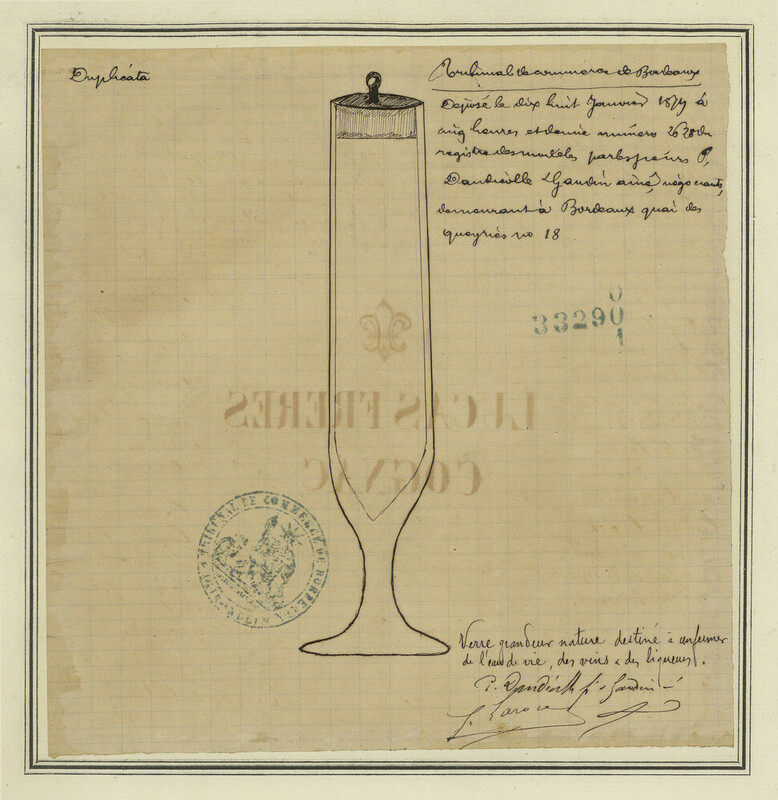 Duplicata
Tribunal de commerce de Bordeaux
Déposé le dix huit Janvier 1879 à
cinq heures et demie numéro 2628 du
registre des modèles par les sieurs P.
Dandieolle & Gaudin ainé, négociants,
demeurant à Bordeaux quai des
queyries no 18
0
33290
1
LUCAS FRERES
COGNAC
TRIBUNAL DE COMMERCE DE BORDEAUX
Verre grandeur nature destiné à enfermer
de l'eau de vie, des vins & des liqueurs.
P. Gaudin